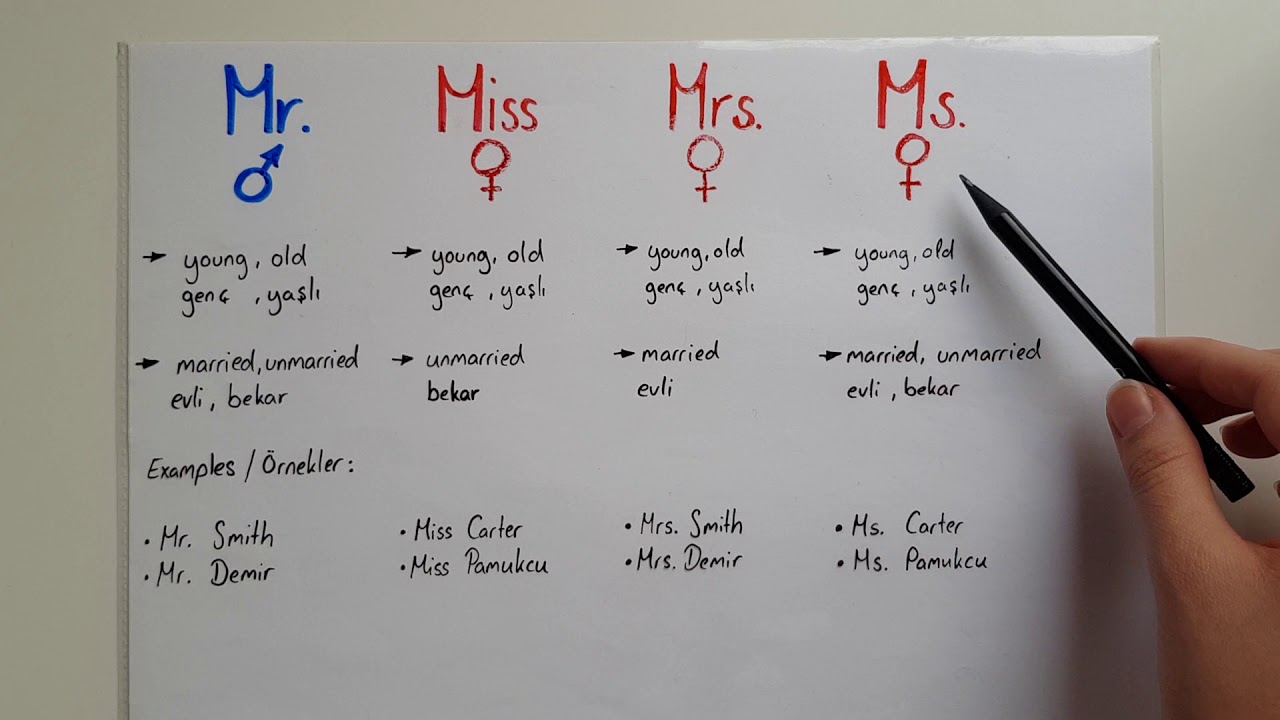 Mr. Miss Mrs. Ms.
→ young, old → young, old → young, old → young, old
genç , yaşlı genç , yaşlı genç , yaşlı genç , yaşlı
→ married, unmarried → unmarried → married → married, unmarried
evli , bekar bekar evli evli , bekar
Examples / Örnekler:
• Mr. Smith • Miss Carter • Mrs. Smith • Ms. Carter
• Mr. Demir • Miss Pamukcu • Mrs. Demir • Ms. Pamukcu